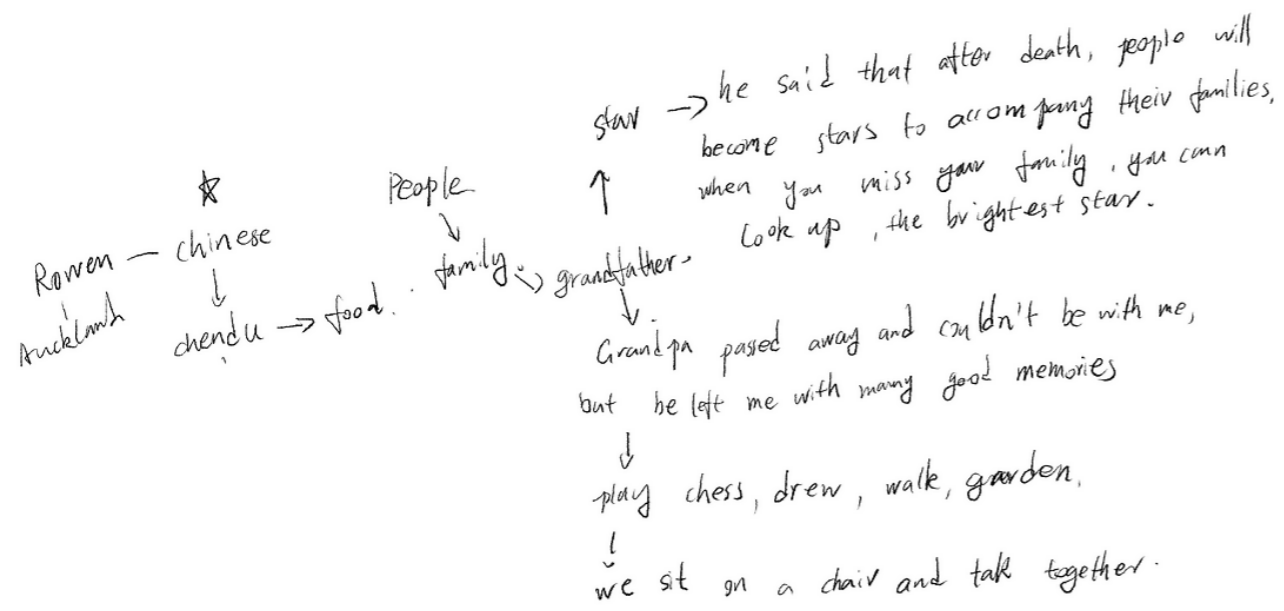 Rowen — chinese
Auckland
chendu → food.
People
family
grandfather
star → he said that after death, people will
become stars to accompany their families,
when you miss your family, you cann
look up, the brightest star.
Grandpa passed away and couldn't be with me,
but he left me with many good memories
play chess, drew, walk, garden,
we sit on a chair and talk together.